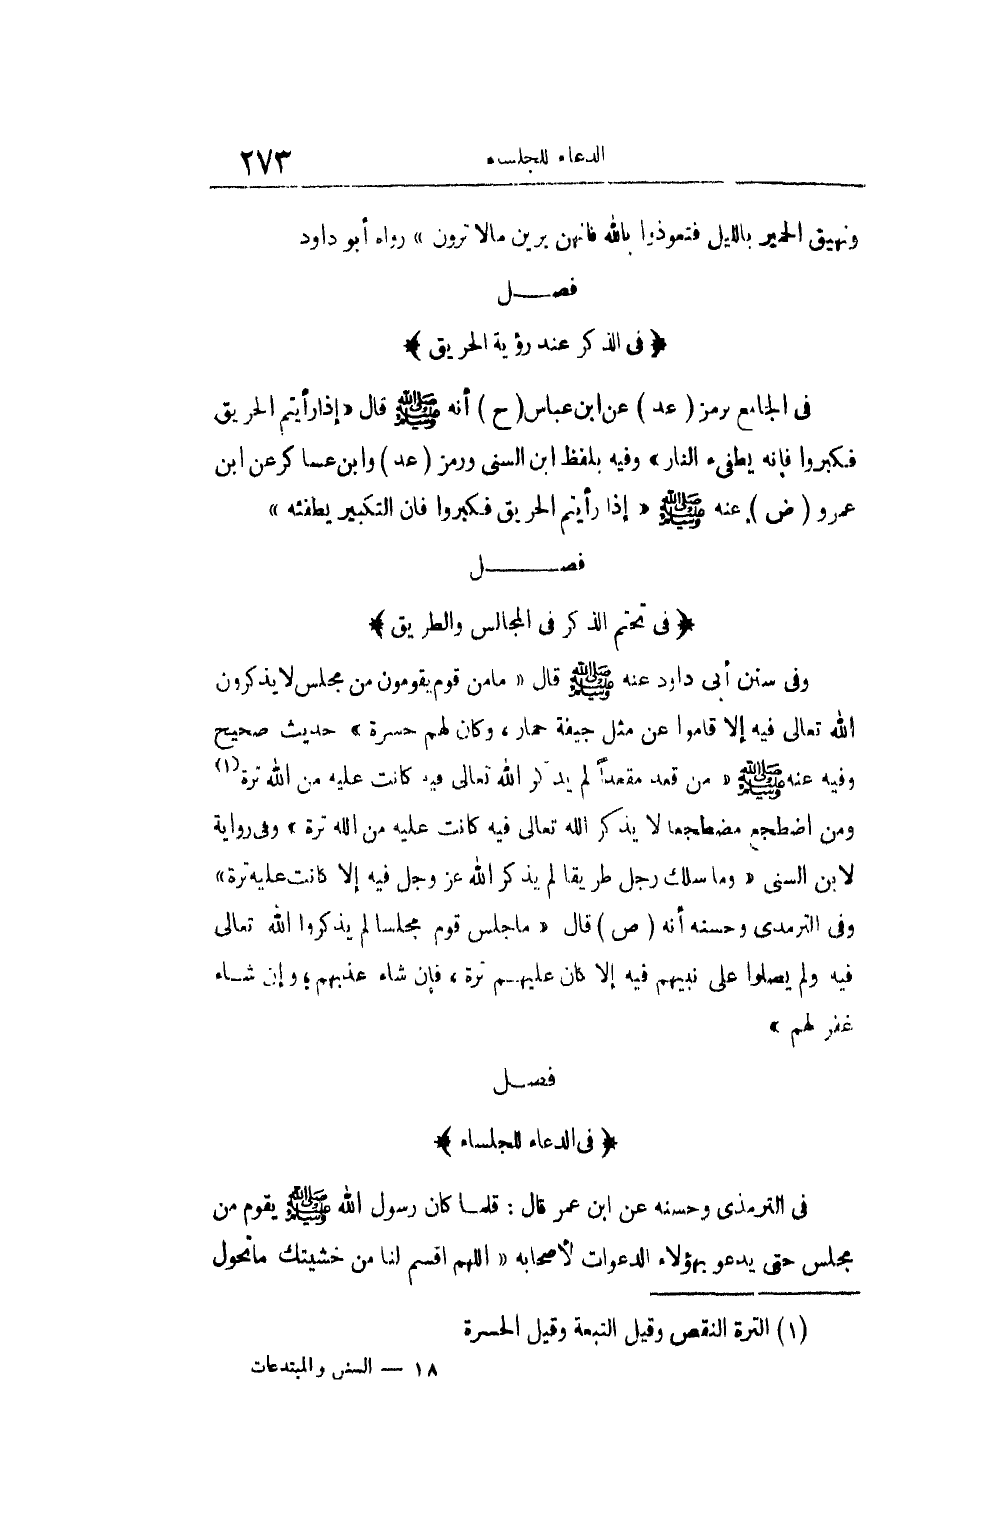 الدعاء للجلساء ٢٧٣
ونهيق الحمير بالليل فتعوذوا بالله فانهن يرين مالا ترون » رواه أبو داود
فصــل
﴿ فى الذكر عند رؤية الحريق ﴾
فى الجامع برمز ( عد ) عن ابن عباس ( ح ) أنه ﷺ قال « إذا رأيتم الحريق
فكبروا فإنه يطفىء النار » وفيه بلفظ ابن السنى ورمز ( عد ) وابن عساكر عن ابن
عمرو ( ض ) عنه ﷺ « إذا رأيتم الحريق فكبروا فان التكبير يطفئه »
فصــــل
﴿ فى تحتم الذكر فى المجالس والطريق ﴾
وفى سنن أبى داود عنه ﷺ قال « مامن قوم يقومون من مجلس لا يذكرون
الله تعالى فيه إلا قاموا عن مثل جيفة حمار ، وكان لهم حسرة » حديث صحيح
وفيه عنه ﷺ « من قعد مقعداً لم يذكر الله تعالى فيه كانت عليه من الله ترة (١)
ومن اضطجع مضطجعا لا يذكر الله تعالى فيه كانت عليه من الله ترة » وفى رواية
لابن السنى « وما سلك رجل طريقا لم يذكر الله عز وجل فيه إلا كانت عليه ترة »
وفى الترمدى وحسنه أنه ( ص ) قال « ماجلس قوم مجلسا لم يذكروا الله تعالى
فيه ولم يصلوا على نبيهم فيه إلا كان عليهــم ترة ، فإن شاء عذبهم ، وإن شــاء
غفر لهم »
فصــل
﴿ فى الدعاء للجلساء ﴾
فى الترمذى وحسنه عن ابن عمر قال : قلمــا كان رسول الله ﷺ يقوم من
مجلس حتى يدعو بهؤلاء الدعوات لأصحابه « اللهم اقسم لنا من خشيتك ماتحول
(١) الترة النقص وقيل التبعة وقيل الحسرة
١٨ — السنن والمبتدعات